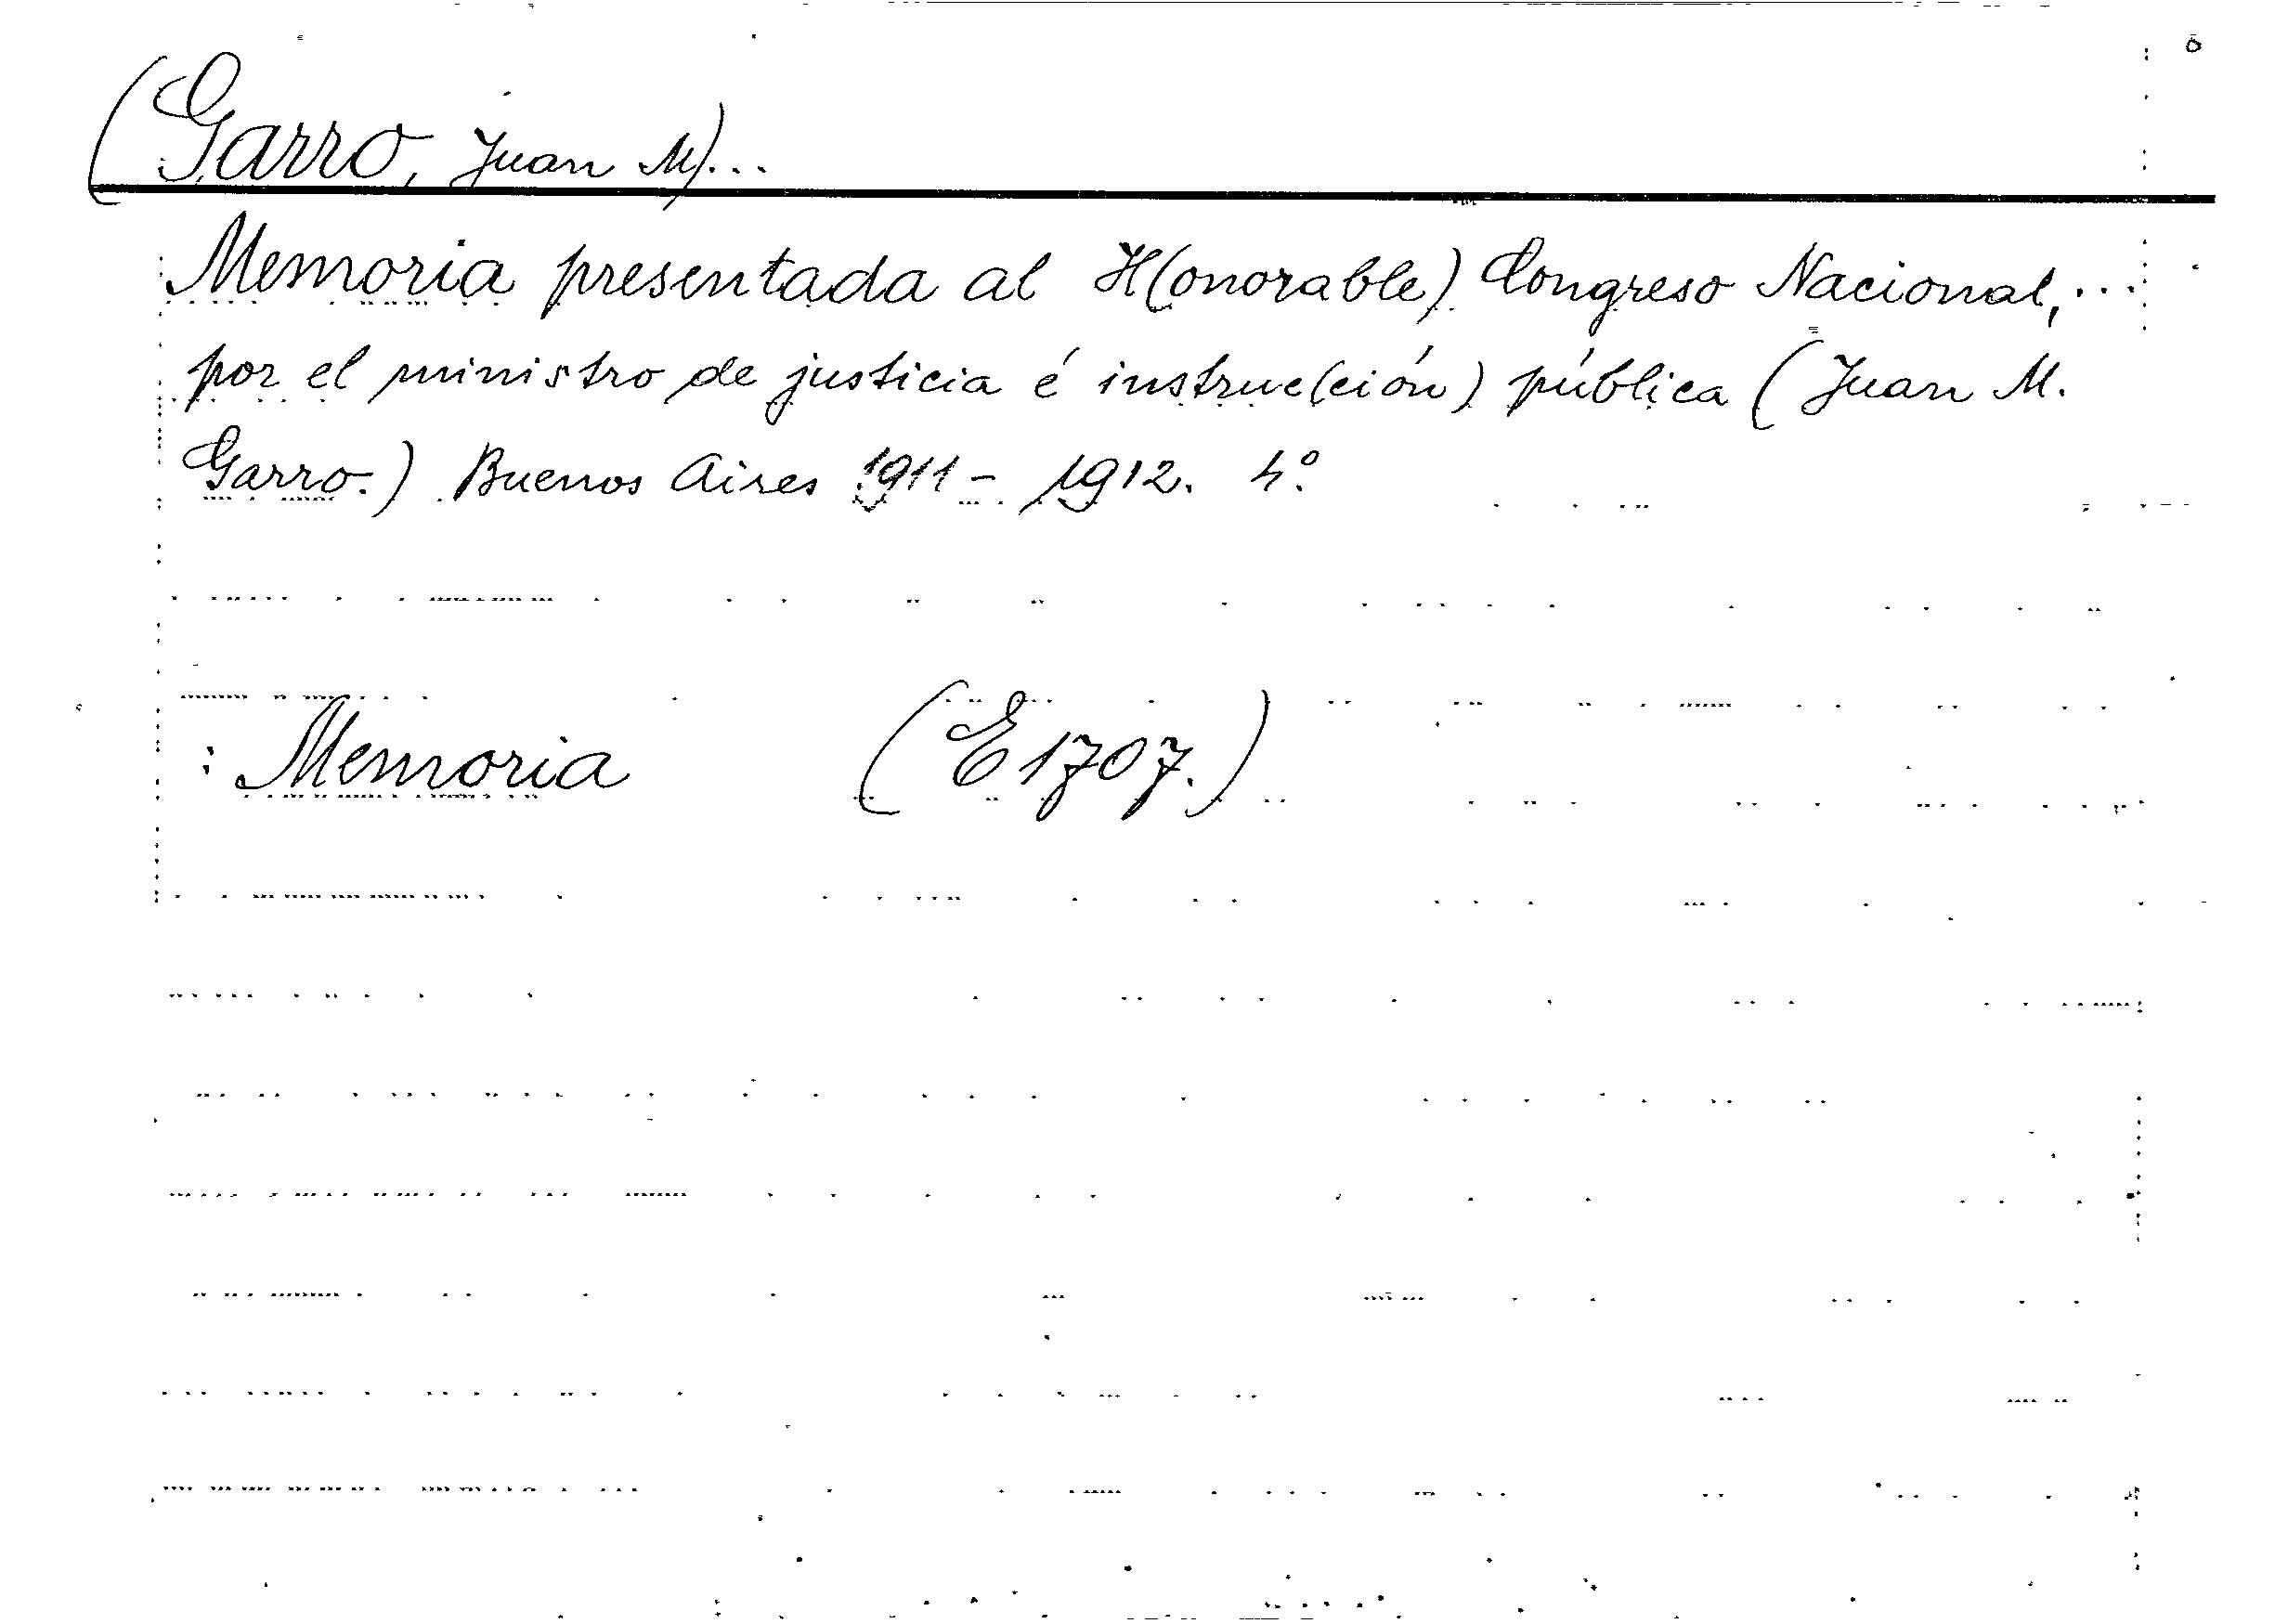 (Garro, Juan M)...
Memoria presentada al H(onorable) Congreso Nacional,...
por el ministro de justicia é instruc(ción) pública (Juan M.
Garro.) Buenos Aires 1911 - 1912. 4°.
: Memoria (E 1707.)